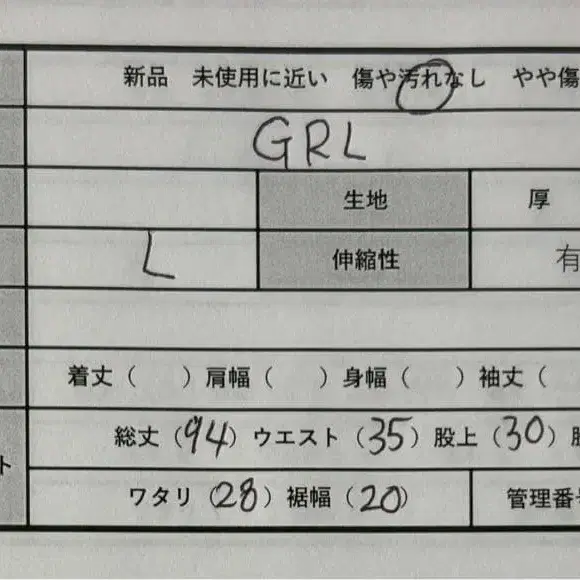 新品 未使用に近い 傷や汚れなし やや傷
GRL
生地 厚
L 伸縮性 有
着丈( )肩幅( )身幅( )袖丈(
総丈(94)ウエスト(35)股上(30)
ト
ワタリ(28)裾幅(20) 管理番